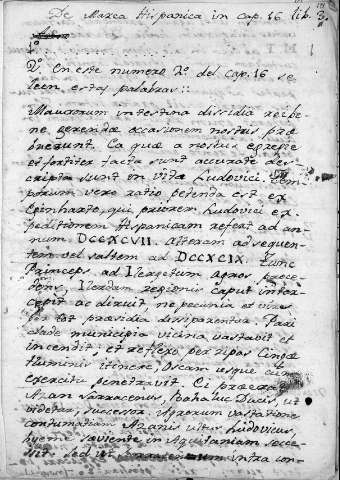 De Marca Hispanica in cap. 16 lib. 3.
1º
2º. En este numero 2º. del cap. 16 se
leen estas palabras::
Maurorum intestina dissidia reipe
ne gerendæ occasionem nostris præ
buerunt. Ea quæ a nostris egregie
et fortiter facta sunt accurate des
cripta sunt in vita Ludovici. Tem
porum vero ratio petenda est ex
Eginharto, qui priorem Ludovici ex
peditionem Hispanicam refert ad an
num DCCXCVII. alteram ad sequen
tem vel saltem ad DCCXCIX. Tunc
Princeps ad Ilergetum agros
Ilerdam regionis caput inter
cepit ac diruit ne pecunia et vires
in tot præsidia dissiparentur. Pari
clade municipia vicina vastavit et
incendit; et reflexo per ripas Cingæ
fluminis itinere, Oscam usque cum
exercitu penetravit. Ei præerat
Azan Sarracenus, Bahaluc Ducis, ut
videtur, successor. Agrorum vastatione
contumatiam Azanis ultus Ludovicus,
hyeme saviente in Aquitaniam seces-
sit. Sed ut infra con-